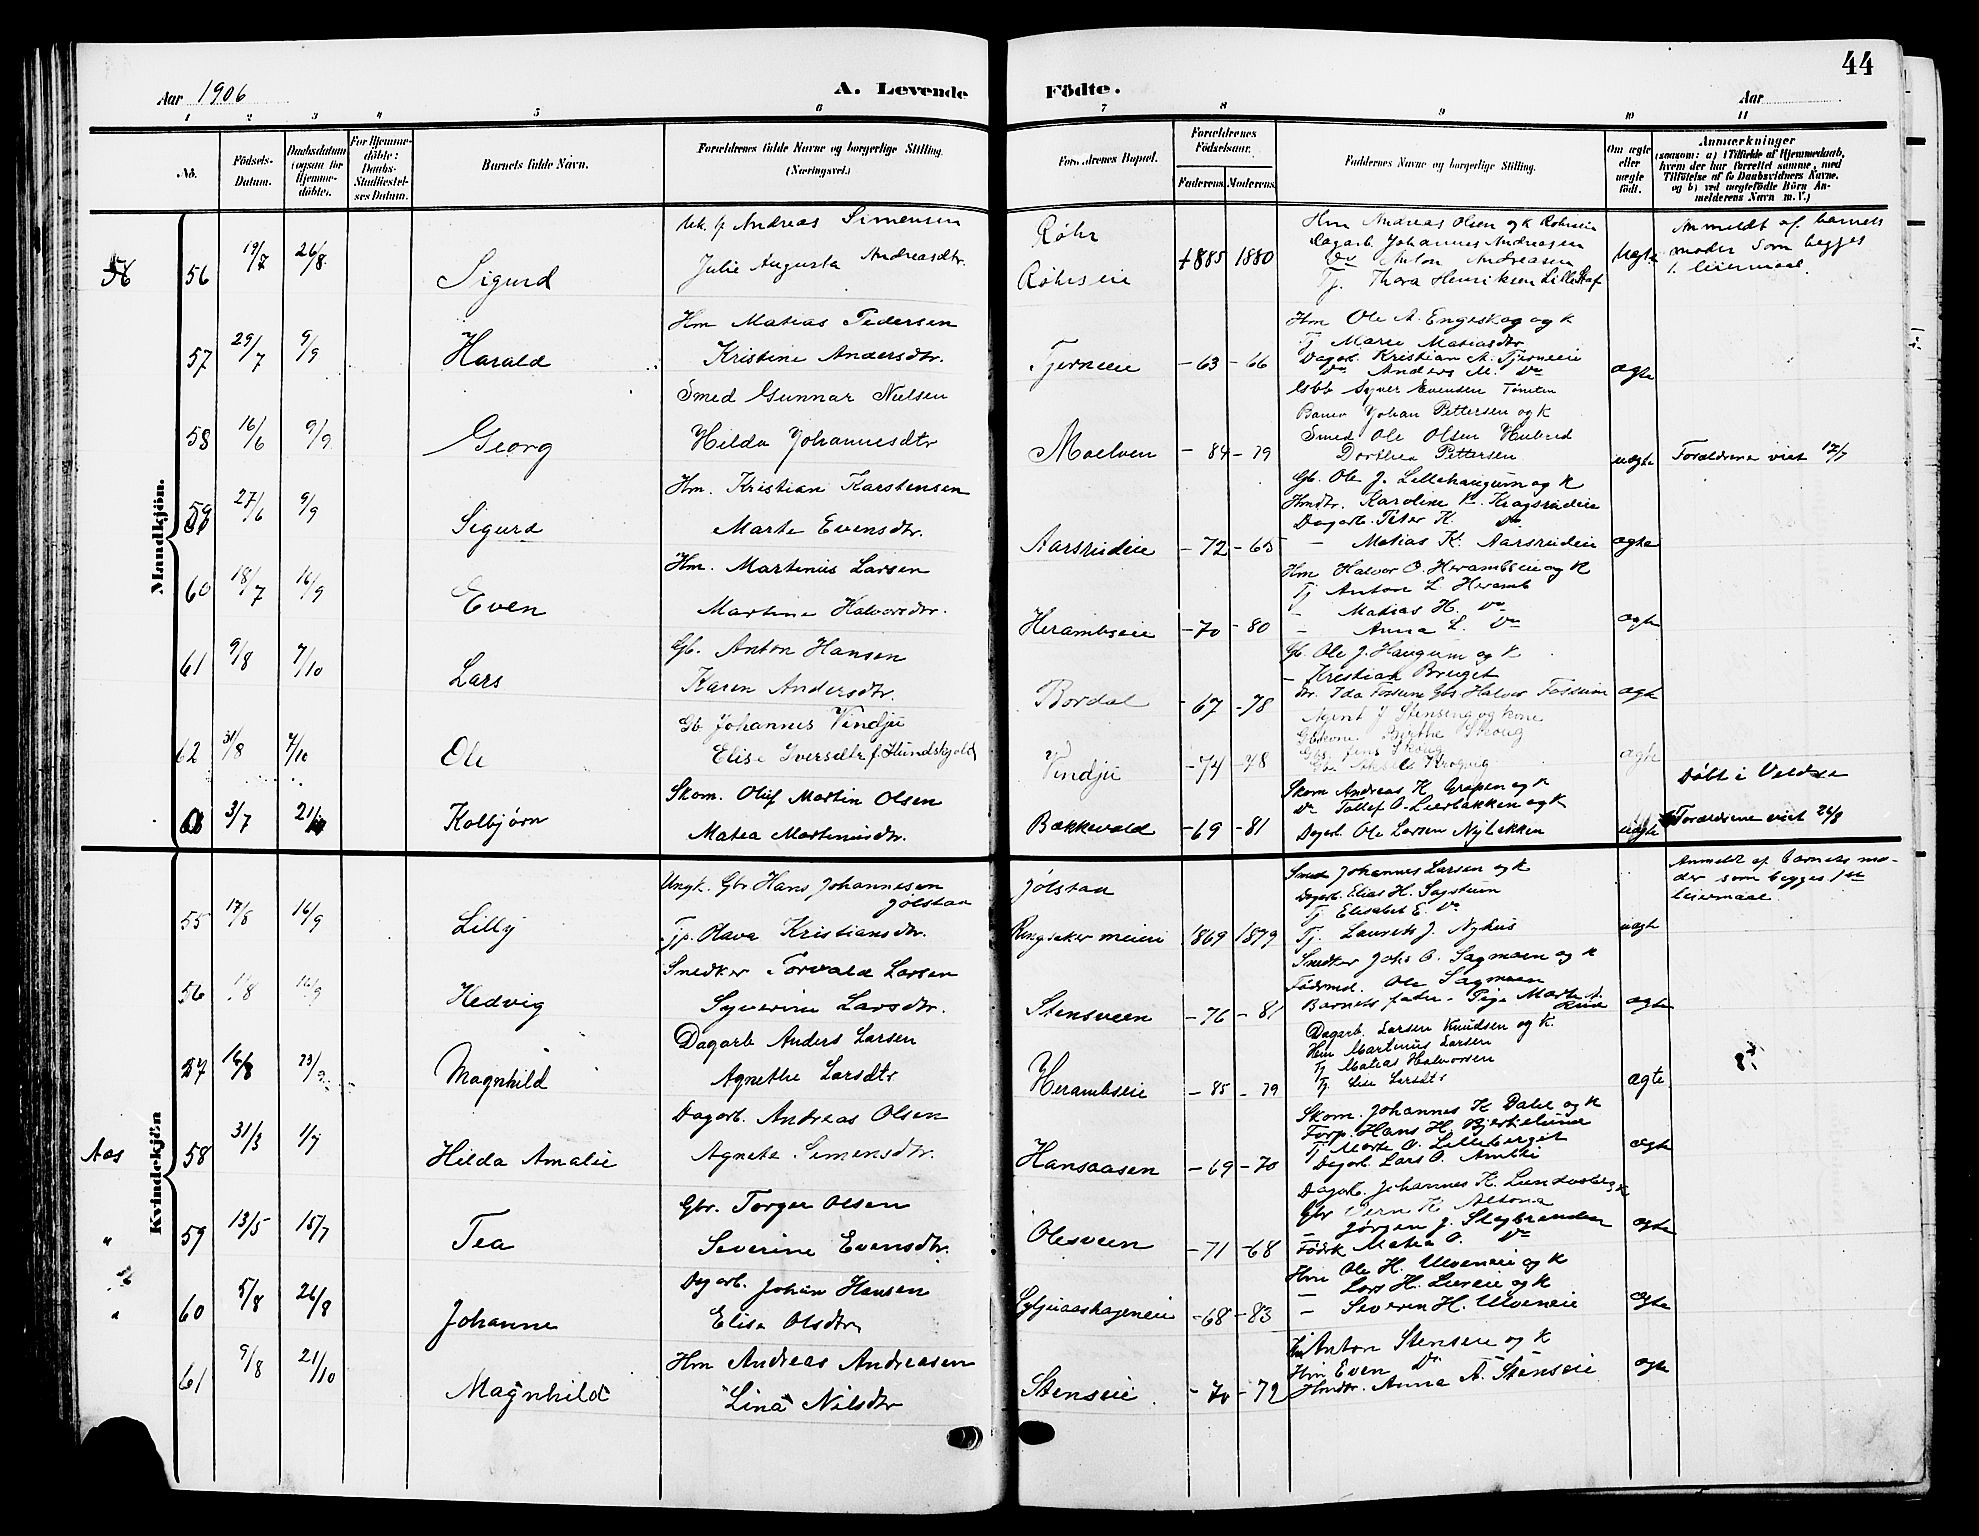 44
Aar 1906
A. Levende
Födte.
Aar
1 2 3 4 5 6 7 8 9 10 11
No.
Födsels-Datum.
Daabsdatum (ogsaa for Hjemmedöbte).
For Hjemmedöbte: Daabs-Stadfæstelses Datum.
Barnets fulde Navn.
Forældrenes fulde Navne og borgerlige Stilling.
(Næringsvei.)
Forældrenes Bopæl.
Forældrenes Födselsaar.
Faderens. Moderens.
Faddernes Navne og borgerlige Stilling.
Om ægte eller uægte født.
Anmærkninger
(saasom: a) i Tilfælde af Hjemmedaab, hvem der har forrettet samme, med Tilføielse af to Daabsvidners Navne, og b) ved uægtefødte Börn Anmelderens Navn m. V.)
Mandkjön.
56 19/7 26/8 Sigurd
Andreas Simensen
Julie Augusta Andreasdtr.
Røhr
Røhrseie
1885 1880
Hm Andreas Olsen og k Røhrseie
Dagarb. Johannes Andreasen
Do Anton Andreasen
Tj. Thora Henriksen Lille Staf
Uægte
Anmeldt af barnets
moder som begges
1. leiermaal.
57 29/7 9/9 Harald
Hm Matias Pedersen
Kristine Andersdtr.
Tjerneie
-63 -66
Hm Ole A. Engeskog og k
Tj Marie Matiasdtr
Dagarb. Kristian A. Tjerneie
Do Anders M. Do
ægte
58 16/6 9/9 Georg
Smed Gunnar Nielsen
Hilda Johannesdtr
Moelven
-84 -79
Syver Evensen Tømten
Johan Pettersen og k
Smed Ole Olsen
Dorthea Pettersen
uægte
Forældrene viet 12/7
59 27/6 9/9 Sigurd
Hm. Kristian Karstensen
Marte Evensdtr.
Aarsrudeie
-72 -65
Gb. Ole J. Lillehaugum og k
Hmdtr. Karoline K. Kragsrudeie
Dagarb. Peter K. Do
- Matias K. Aarsrudeie
ægte
60 18/7 16/9 Even
Hm. Martinus Larsen
Martine Halvorsdtr.
Herambseie
-70 -80
Hm Halvor O. Herambseie og k
Tj Anton L Heramb
- Matias H. Do
- Anna L. Do
ægte
61 9/8 7/10 Lars
Gb. Anton Hansen
Karen Andersdtr.
Bordal
-67 -78
Gb. Ole J. Haugum og k
- Kristian Breiget
Fr. Ida Fossum Gbr Halvor Fossum
ægte
62 31/8 7/10 Ole
Gb Johannes Vindju
Elise Iversdtr f. Hundskjold
Vindju
-74 -78
Agent J Stenseng og kone
Gbkone Birthe Skoug
Gbr Jens Skoug
ægte
3/7 Kolbjørn
Skom. Oluf Martin Olsen
Matea Martinusdtr.
Bækkevold
-69 -81
Skom Andreas H Grapen og k
Do Tollef O. Leerbakken og k
Dagarb. Ole Larsen Nybakken
uægte
Døbt i Veldre
Forældrene viet 26/8
Kvindekjön
55 17/8 16/9 Lilly
Ungk. Gbr Hans Johannesen
Jølstad
Tjp. Olava Kristiansdtr.
Jølstad
Ringsaker meieri
1869 1879
Smed Johannes Larsen og k
Dagarb. Elias H. Sagstuen
Tj. Elisabet E. Do
Tj. Laurits J. Nyhus
uægte
Anmeldt af barnets mo-
der som begges 1ste
leiermaal.
56 16/9 Hedvig
Snedker Torvald Larsen
Syverine Larsdtr.
Stensveen
-76 -81
Snedker Johs O. Sagmoen og k
Fødsmd. Ole Sagmoen
Barnets fader. Pige Marte A.
Rud
ægte
57 16/8 23/9 Magnhild
Dagarb Anders Larsen
Agnethe Larsdtr
Herambseie
-85 -79
Dagarb. Larsen Knudsen og k.
Hm Martinus Larsen
Tj Matias Halvorsen
Tj. Lise Larsdtr
ægte
Aas 58 31/3 1/7 Hilda Amalie
Dagarb. Andreas Olsen
Agnete Simensdtr.
Hansaasen
-69 -70
Skom. Johannes K Dalie og k
Forp. Hans H. Hjortelund
Tj Marte O. Lilleberget
Dagarb. Lars O. Amlie
ægte
" 59 13/5 15/7 Tea
Gbr. Torger Olsen
Severine Evensdtr.
Olesveen
-71 -68
Dagarb. Johannes K. Lundesberg og k
Gbr K Altona
- Jørgen J. Stegbranden
Fødrk Matea O. Do
ægte
" 60 5/8 26/8 Johanne
Dagarb. Johan Hansen
Elise Olsdtr
-68 -83
Hm Ole H. Ulveneie og k
- Lars H. Lieeie og k
- Severin H. Ulveneie
ægte
61 9/8 21/10 Magnhild
Hm Andreas Andreasen
Lina Nilsdtr
Stenseie
-70 -72
Hm Anton Stenseie og k
Hm Even Do
Hmdtr. Anna A. Stenseie
ægte